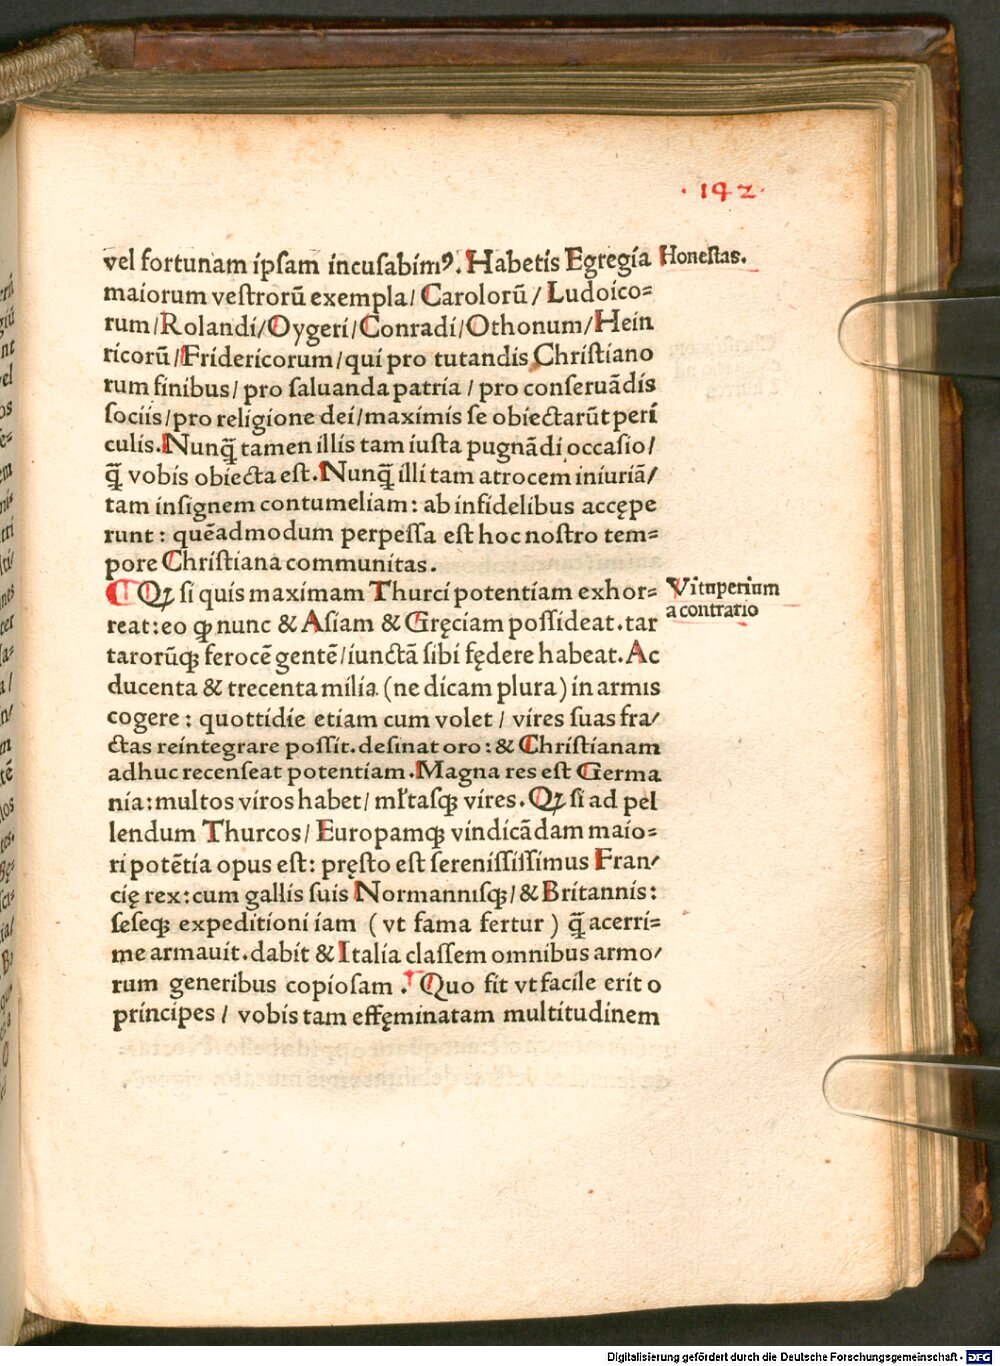 · 142 ·
vel fortunam ipsam incusabimꝰ. Habetis Egregia
Honestas.
maiorum vestrorū exempla/ Carolorū/ Ludoico=
rum/Rolandi/Oygeri/Conradi/Othonum/Hein
ricorū/Fridericorum/qui pro tutandis Christiano
rum finibus/ pro saluanda patria / pro conseruādis
sociis/pro religione dei/maximis se obiectarūt peri
culis. Nunq̄ tamen illis tam iusta pugnādi occasio/
q̄ vobis obiecta est. Nunq̄ illi tam atrocem iniuriā/
tam insignem contumeliam: ab infidelibus accępe
runt: quēadmodum perpessa est hoc nostro tem=
pore Christiana communitas.
¶ Qꝫ si quis maximam Thurci potentiam exhor=
Vituperium
a contrario
reat: eo ꝙ nunc & Asiam & Gręciam possideat. tar
tarorūqꝫ ferocē gentē/iunctā sibi fędere habeat. Ac
ducenta & trecenta milia (ne dicam plura) in armis
cogere: quottidie etiam cum volet / vires suas fra/
ctas reintegrare possit. desinat oro: & Christianam
adhuc recenseat potentiam. Magna res est Germa
nia: multos viros habet/ młtasqꝫ vires. Qꝫ si ad pel
lendum Thurcos/ Europamqꝫ vindicādam maio=
ri potētia opus est: pręsto est serenississimus Fran/
cię rex: cum gallis suis Normannisqꝫ/ & Britannis:
seseqꝫ expeditioni iam ( vt fama fertur ) q̄ acerri=
me armauit. dabit & Italia classem omnibus armo/
rum generibus copiosam. Quo fit vt facile erit o
principes / vobis tam effęminatam multitudinem
Digitalisierung gefördert durch die Deutsche Forschungsgemeinschaft - DFG